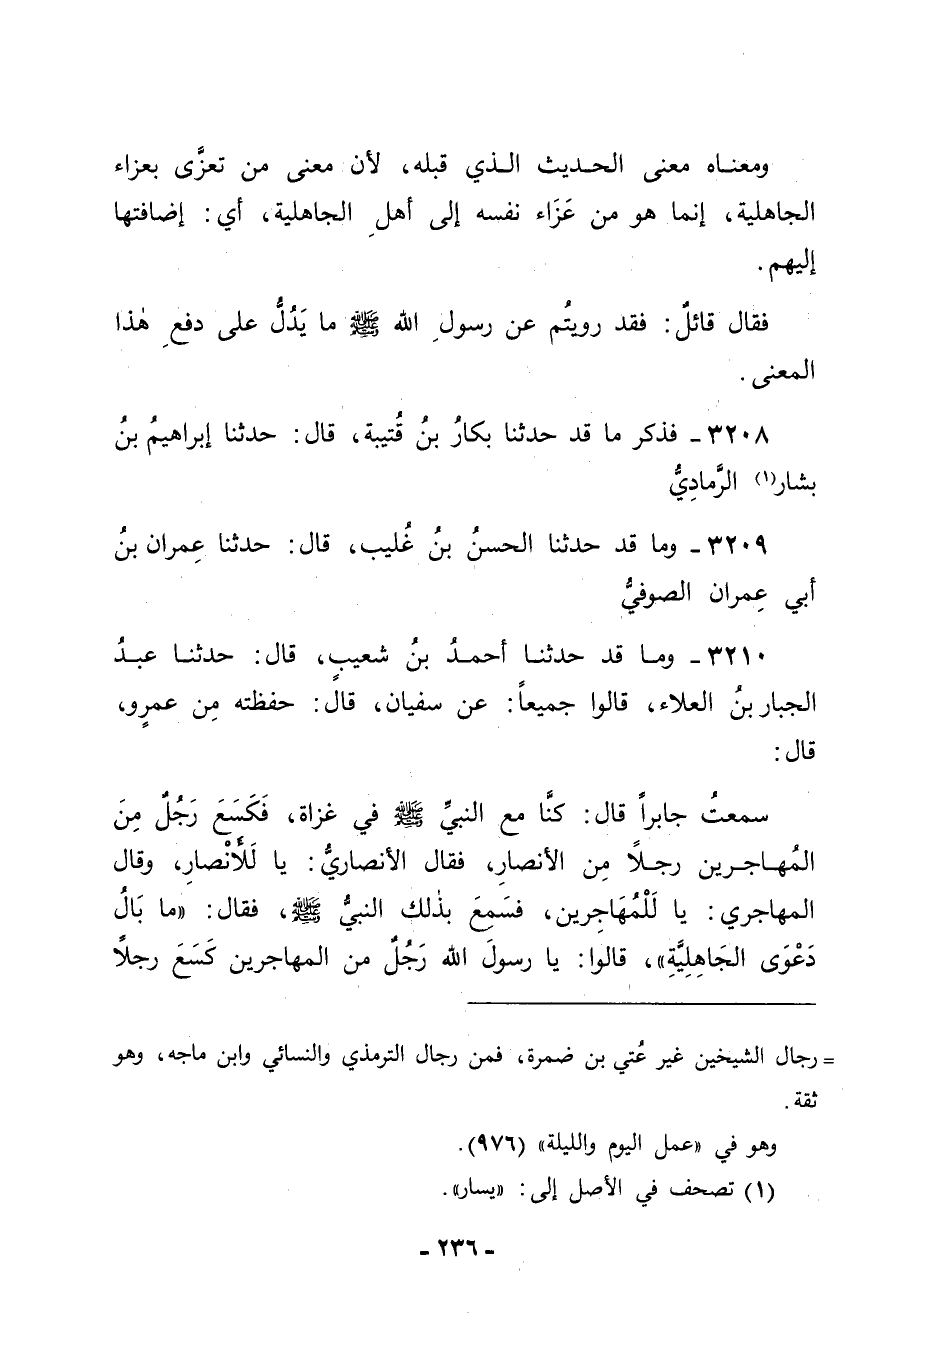 ومعنـاه معنى الحـديث الـذي قبله، لأن معنى من تعزَّى بعزاء
الجاهلية، إنما هو من عَزَاء نفسه إلى أهلِ الجاهلية، أي: إضافتها
إليهم.
فقال قائلٌ: فقد رويتُم عن رسولِ الله ﷺ ما يَدُلُّ على دفعِ هٰذا
المعنى.
٣٢٠٨ - فذكر ما قد حدثنا بكارُ بنُ قُتيبة، قال: حدثنا إبراهيمُ بنُ
بشار(١) الرَّمادِيُّ
٣٢٠٩ - وما قد حدثنا الحسنُ بنُ غُليب، قال: حدثنا عِمران بنُ
أبي عِمران الصوفيُّ
٣٢١٠ - وما قد حدثنا أحمدُ بنُ شعيبٍ، قال: حدثنا عبدُ
الجبار بنُ العلاء، قالوا جميعاً: عن سفيان، قال: حفظته مِن عمرٍو،
قال:
سمعتُ جابراً قال: كنَّا مع النبيِّ ﷺ في غزاة، فَكَسَعَ رَجُلٌ مِنَ
المُهاجرين رجلاً مِن الأنصارِ، فقال الأنصاريُّ: يا لَلأَنْصارِ، وقال
المهاجري: يا لَلْمُهَاجِرين، فسَمِعَ بذٰلك النبيُّ ﷺ، فقال: «ما بَالُ
دَعْوَى الجَاهِلِيَّةِ»، قالوا: يا رسولَ الله رَجُلٌ من المهاجرين كَسَعَ رجلاً
= رجال الشيخين غير عُتي بن ضمرة، فمن رجال الترمذي والنسائي وابن ماجه، وهو
ثقة.
وهو في «عمل اليوم والليلة» (٩٧٦).
(١) تصحف في الأصل إلى: «يسار».
- ٢٣٦ -